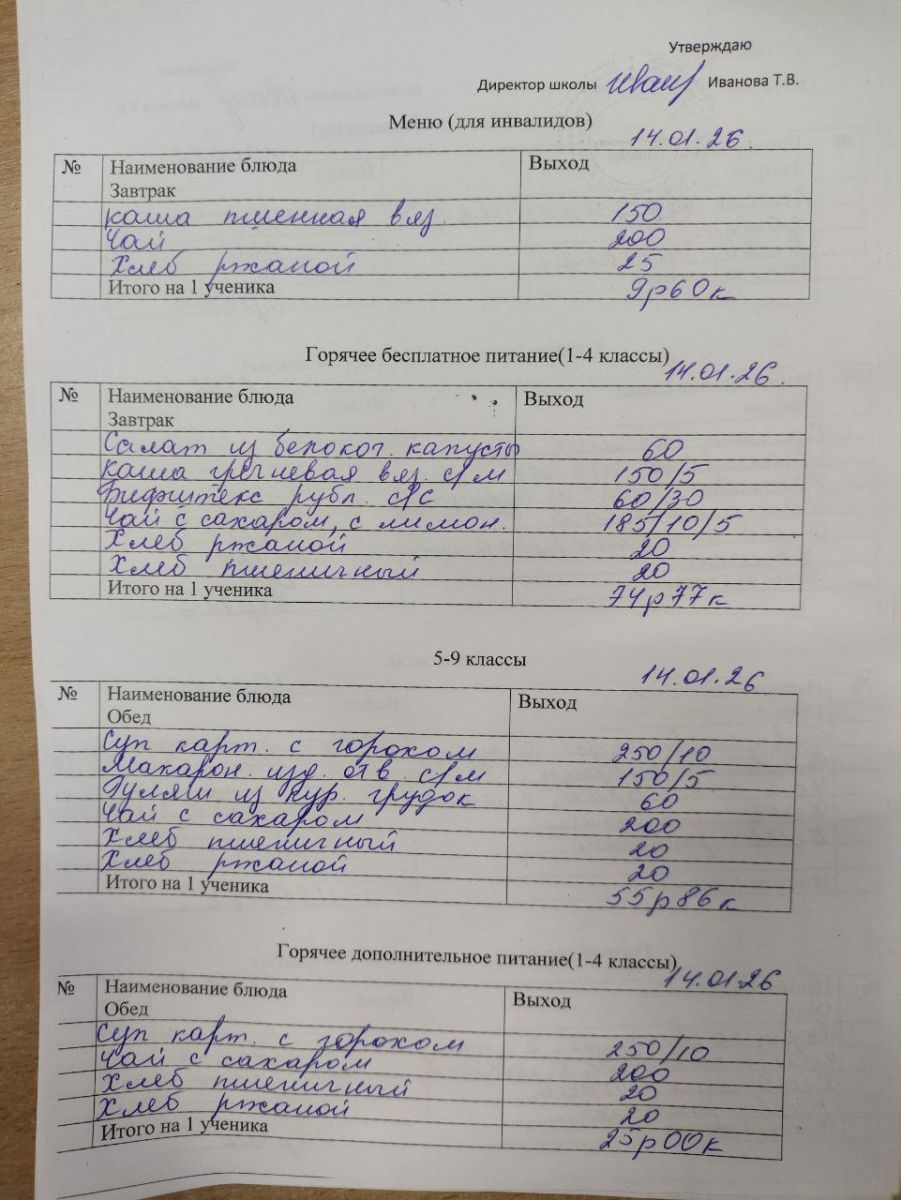 Утверждаю
Директор школы Иванова Т.В.
Меню (для инвалидов)
14.01.26.
№ Наименование блюда Выход
Завтрак
каша пшенная вяз. 150
Чай 200
Хлеб ржаной 25
Итого на 1 ученика 9р60к
Горячее бесплатное питание(1-4 классы)
14.01.26.
№ Наименование блюда Выход
Завтрак
Салат из белокоч. капусты 60
каша гречневая вяз. с/м 150/5
Бифштекс рубл. с/с 60/30
Чай с сахаром, с лимон. 185/10/5
Хлеб ржаной 20
Хлеб пшеничный 20
Итого на 1 ученика 74р77к
5-9 классы
14.01.26
№ Наименование блюда Выход
Обед
Суп карт. с горохом 250/10
Макарон. изд. отв. с/м 150/5
Гуляш из кур. грудок 60
Чай с сахаром 200
Хлеб пшеничный 20
Хлеб ржаной 20
Итого на 1 ученика 55р86к
Горячее дополнительное питание(1-4 классы)
14.01.26
№ Наименование блюда Выход
Обед
Суп карт. с горохом 250/10
Чай с сахаром 200
Хлеб пшеничный 20
Хлеб ржаной 20
Итого на 1 ученика 25р00к